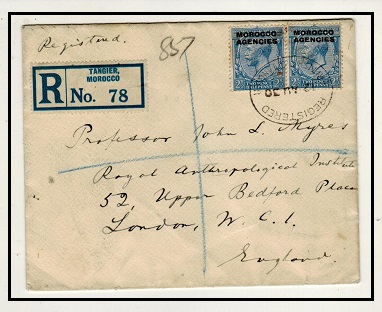 Registered.
857
MOROCCO
AGENCIES
MOROCCO
AGENCIES
TANGIER,
MOROCCO
R No. 78
REGISTERED
Professor John L. Myres
Royal Anthropological Institute
52, Upper Bedford Place
London, W. C. 1.
England.